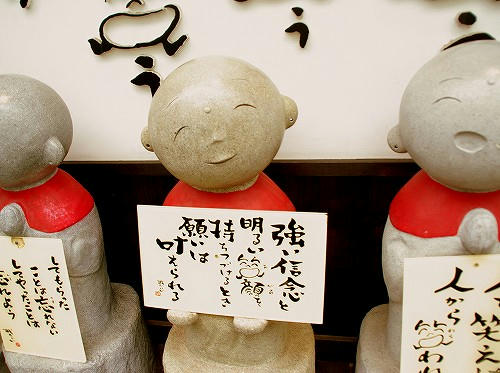 う
う
人
強い信念と
明るい笑顔を
持ちつづけるとき
願いは
叶えられる
してもらった
ことは忘れない
してやったことは
忘れよう
笑え
人から笑われ